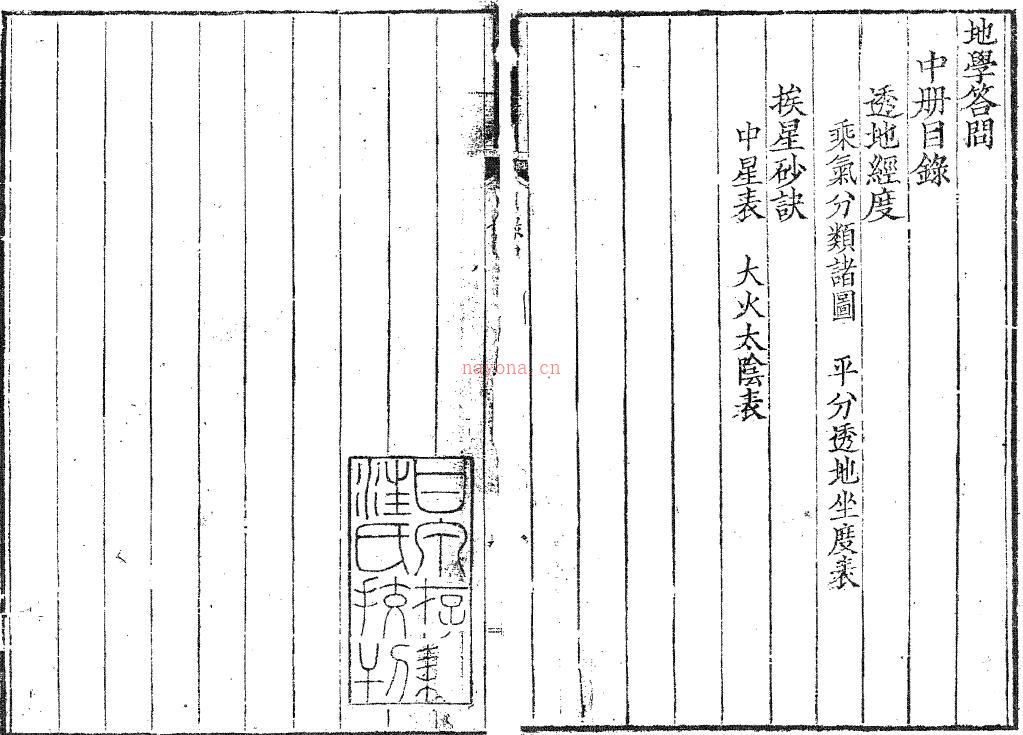 地學答問
中册目錄
透地經度
乘氣分類諸圖　平分透地坐度表
挨星砂訣
中星表　大火太陰表
nayona.cn
汪氏